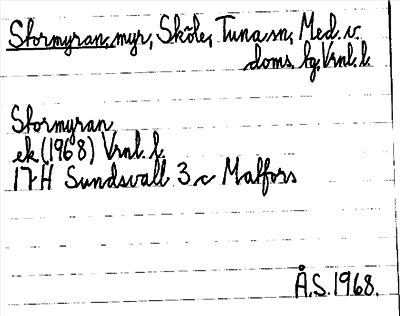 Stormyran, myr, Sköle, Tuna sn, Med. v.
doms. tg. Vrnl. l.
Stormyran
ek (1968) Vrnl. l.
17H Sundsvall 3 c Malfors
Å.S. 1968.